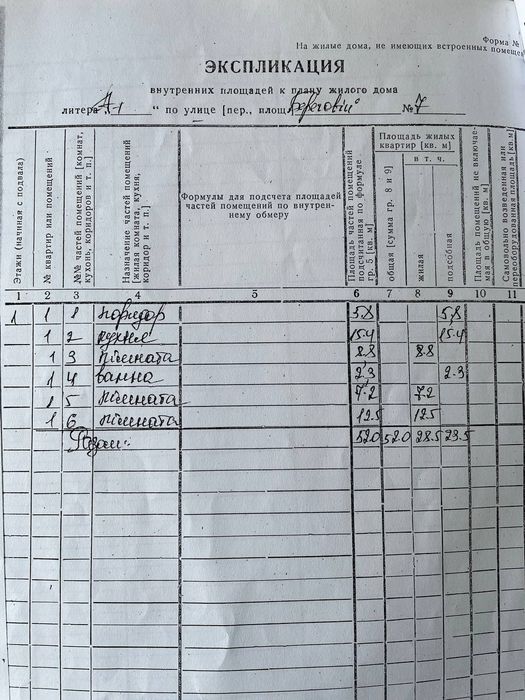 Форма №
На жилые дома, не имеющих встроенных помеще
ЭКСПЛИКАЦИЯ
внутренних площадей к плану жилого дома
литера А-1 “ по улице [пер., площ. Береговій № 7
Этажи (начиная с подвала)
№ квартир или помещений
№№ частей помещений [комнат, кухонь, коридоров и т. п.]
Назначение частей помещений [жилая комната, кухня, коридор и т. п.]
Формулы для подсчета площадей частей помещений по внутреннему обмеру
Площадь частей помещений подсчитанная по формуле гр. 5 [кв. м]
Площадь жилых квартир [кв. м]
общая [сумма гр. 8 и 9]
в т. ч.
жилая
подсобная
Площадь помещений не включаемая в общую [кв. м]
Самовольно возведенная или переоборудованная площадь [кв.м]
1 2 3 4 5 6 7 8 9 10 11
1 1 1 коридор 5,8 5,8
1 2 кухня 15.4 15.4
1 3 кімната 8.8 8.8
1 4 ванна 2.3 2.3
1 5 кімната 7.2 7.2
1 6 кімната 12.5 12.5
Разом: 52.0 52.0 28.5 23.5